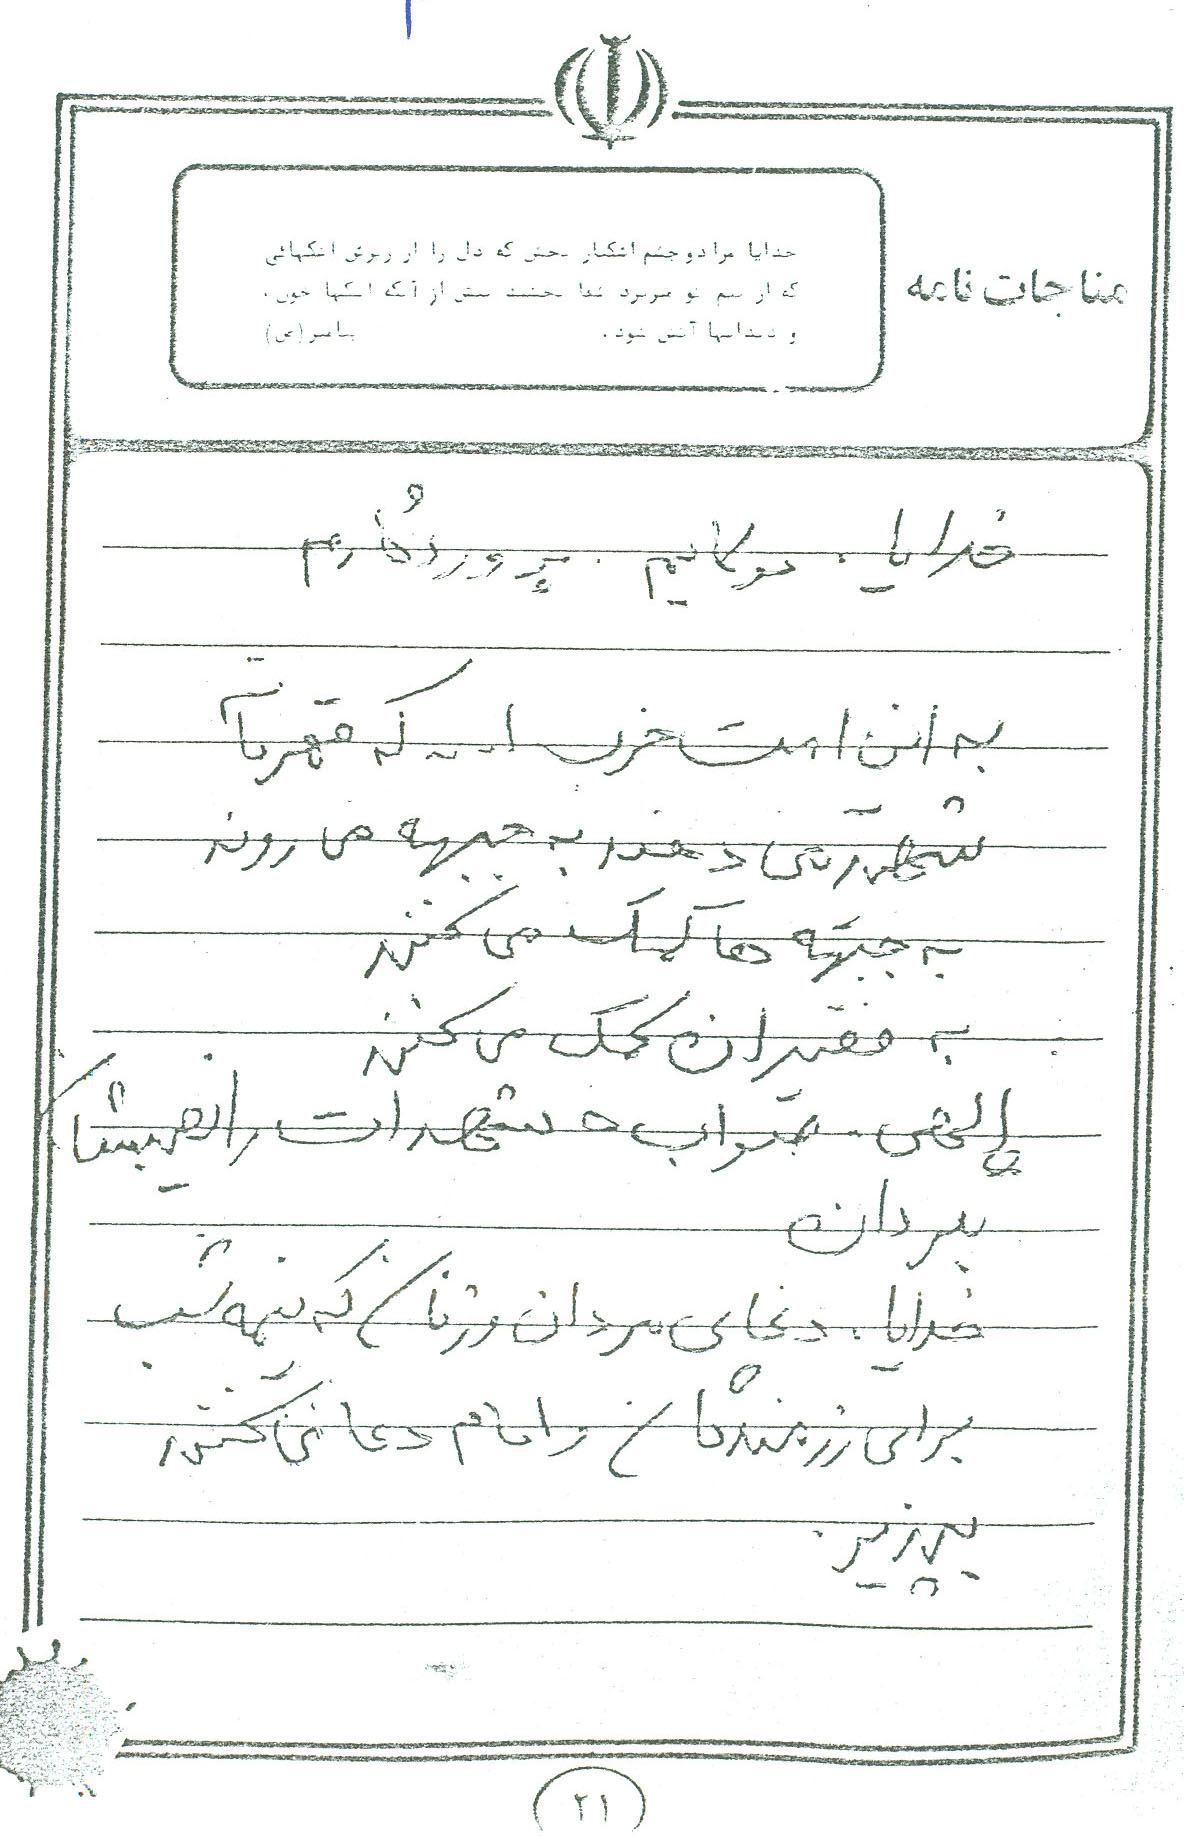 مناجات نامه
خدایا مرا دو چشم اشکبار بخش که دل را از ریزش اشکهائی
که از بیم تو میریزد شفا بخشند پیش از آنکه اشکها خون،
و دندانها آتش شود. پیامبر(ص)
خدایا، مولایم. پروردگارم
به این امت حزب ا... که قهرمانانه
شهید می دهند به جبهه می روند
به جبهه ها کمک می کنند
به فقیران کمک می کنند
الهی. ثواب شهدات را نصیبشان
بگردان
خدایا، دعای مردان وزنان که نیمه شب
برای رزمندگان و امام دعا می کنند
بپزیر.
۲۱